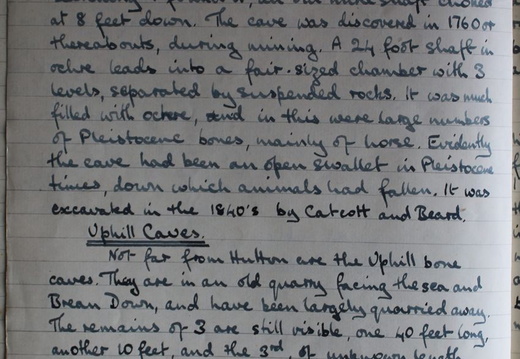 at 8 feet down. The cave was discovered in 1760 or
thereabouts, during mining. A 24 foot shaft in
ochre leads into a fair-sized chamber with 3
levels, separated by suspended rocks. It was much
filled with ochre, and in this were large numbers
of Pleistocene bones, mainly of horse. Evidently
the cave had been an open swallet in Pleistocene
times, down which animals had fallen. It was
excavated in the 1840's by Catcott and Beard.
Uphill Caves.
Not far from Hutton are the Uphill bone
caves. They are in an old quarry facing the sea and
Brean Down, and have been largely quarried away.
The remains of 3 are still visible, one 40 feet long,
another 10 feet, and the 3rd, of unknown length